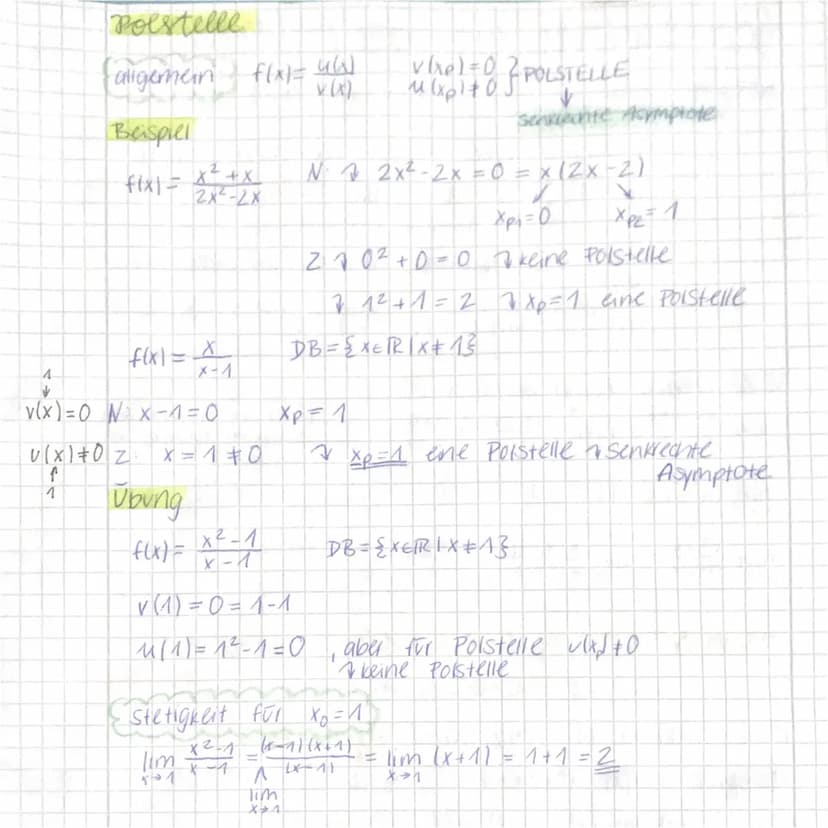 Polstelle
allgemein f(x) = u(x)/v(x) v(xp) = 0 } POLSTELLE
u(xp) ≠ 0
↓
senkrechte Asymptote
Beispiel
f(x) = (x² + x)/(2x² - 2x) N: ↴ 2x² - 2x = 0 = x (2x - 2)
xp1 = 0 xp2 = 1
Z ↴ 0² + 0 = 0 ↴ keine Polstelle
↴ 1² + 1 = 2 ↴ xp = 1 eine Polstelle
f(x) = x/(x - 1) DB = {x ∈ ℝ | x ≠ 1}
1
↓
v(x) = 0 N: x - 1 = 0 xp = 1
u(x) ≠ 0 Z: x = 1 ≠ 0 ↴ xp = 1 eine Polstelle ↴ senkrechte
↑
1
Asymptote
Übung
f(x) = (x² - 1)/(x - 1) DB = {x ∈ ℝ | x ≠ 1}
v(1) = 0 = 1 - 1
u(1) = 1² - 1 = 0 , aber für Polstelle u(x) ≠ 0
↴ keine Polstelle
Stetigkeit für x₀ = 1
lim x→1 (x² - 1)/(x - 1) = (x - 1)(x + 1)/(x - 1) = lim x→1 (x + 1) = 1 + 1 = 2
∧
lim
x→1